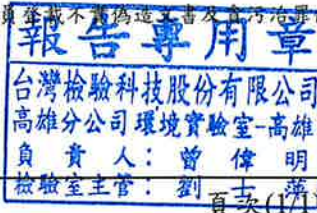 員登載不實偽造文書及貪污治罪
報告專用章
台灣檢驗科技股份有限公司
高雄分公司環境實驗室-高雄
負責人：曾偉明
檢驗室主管：劉士
頁次(1/1)